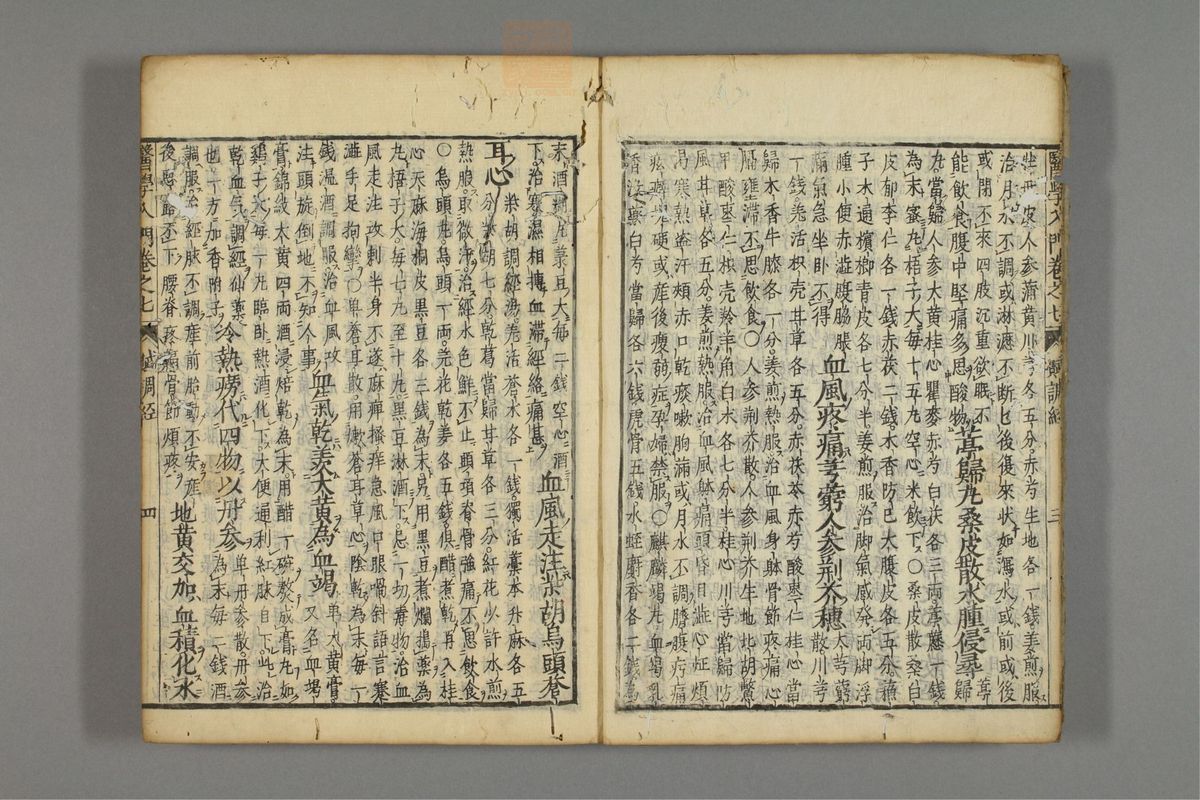 醫學入門卷之七 鍼調經 三
牡丹皮人參濟黃川芎各五分赤芍生地各一錢姜煎服
治月水不調或淋瀝不斷乜後復來狀如瀉水或前或後
或閉不來四肢沉重欲眠不
能飲食腹中堅痛多思酸物 葶歸丸桑皮散水腫侵尋 葶歸
丸當歸人參大黄桂心瞿麥赤芍白茯各三兩葶藶一錢
為末蜜丸梧子大每十五丸空心米飲下〇桑皮散桑白
皮郁李仁各一錢赤茯二錢木香防己大腹皮各五分蘇
子木通檳榔青皮各七分半姜煎服治脚氣感発両脚浮
腫小便赤澁腹脇脹
滿氣急坐卧不得 血風疼痛芎藭人參荆芥穗 大芎藭散川芎
一錢羌活枳壳甘草各五分赤茯苓赤芍酸棗仁桂心當
歸木香牛膝各一分姜煎熱服治血風身躰骨節疼痛心
膈壅滯不思飲食〇人參荆芥散人參荆芥生地北胡鱉
甲酸棗仁枳壳羚羊角白术各七分半桂心川芎當歸防
風甘草各五分姜煎熱服治血風躰痛頭昏目澁心怔煩
渴寒熱盗汗頰赤口乾痰嗽胸滿或月水不調臍腹疞痛
痃癖塊硬或産後瘦弱症孕婦禁服〇麒麟竭丸血竭乳
香沒藥白芍當歸各六錢虎骨五錢水蛭麝香各二錢為
末酒糊丸菉豆大每二錢空心酒
下治寒濕相摶血滯經絡痛甚 血風走注柴胡烏頭蒼
耳心 柴胡調經湯羌活蒼术各一錢獨活藁本升麻各五
分柴胡七分乾葛當歸甘草各三分紅花少許水煎
熱服取微汗治經水色鮮不止頭項脊骨強痛不思飲食
〇烏頭丸烏頭一兩芫花乾姜各五錢俱醋煮乾再入桂
心天麻海桐皮黑豆各三錢為末另用黒豆煮爛搗藥為
丸梧子大每七丸至十丸黒豆淋酒下忌一切毒物治血
風走注攻刺半身不遂麻痺搔痒急風口眼喎斜語言蹇
澁手足拘攣〇單蒼耳散用嫩蒼耳草心陰乾為末每一
錢温酒調服治血風攻
注頭旋倒地不知人事 血氣乾姜大黃為血竭 單大黄膏又名血竭
膏錦紋大黄四兩酒浸焙乾為末用醋一碗熬成膏丸如
雞子大每一丸臨卧熱酒化下大便通利紅脉自下此治
乾血気調經仙藥
也一方加香附子 冷熱癆代四物以丹參 單丹參散丹參
為末每二錢酒
調服治經脉不調産前胎動不安産
後惡露不下腰脊疼痛骨節煩疼 地黃交加血積化水
醫學入門卷之七 鍼調經 四